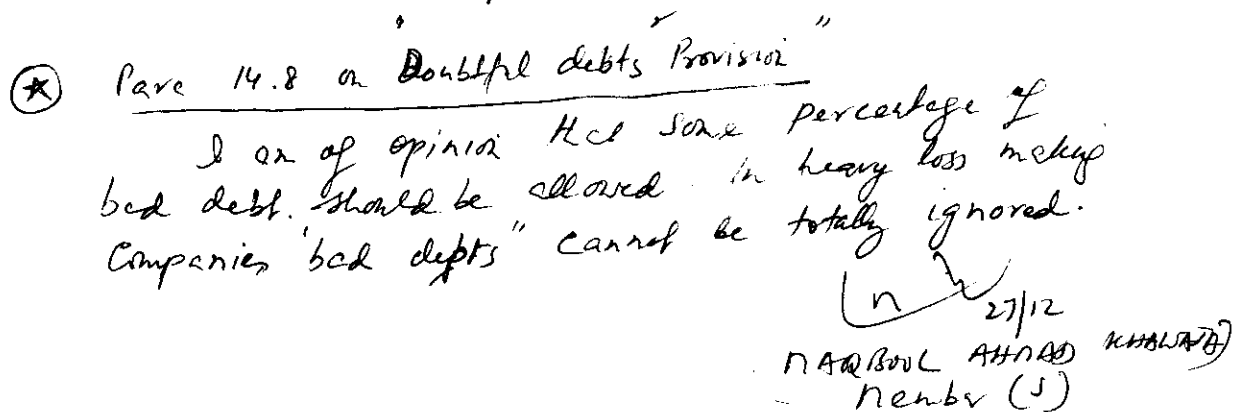 Para 14.8 on "Doubtful debts Provision"
I am of opinion that some percentage of
bad debt. should be allowed. in heavy loss making
Companies "bad debts" cannot be totally ignored.
27/12
MAQBOOL AHMAD KHAWAJA)
Member (J)